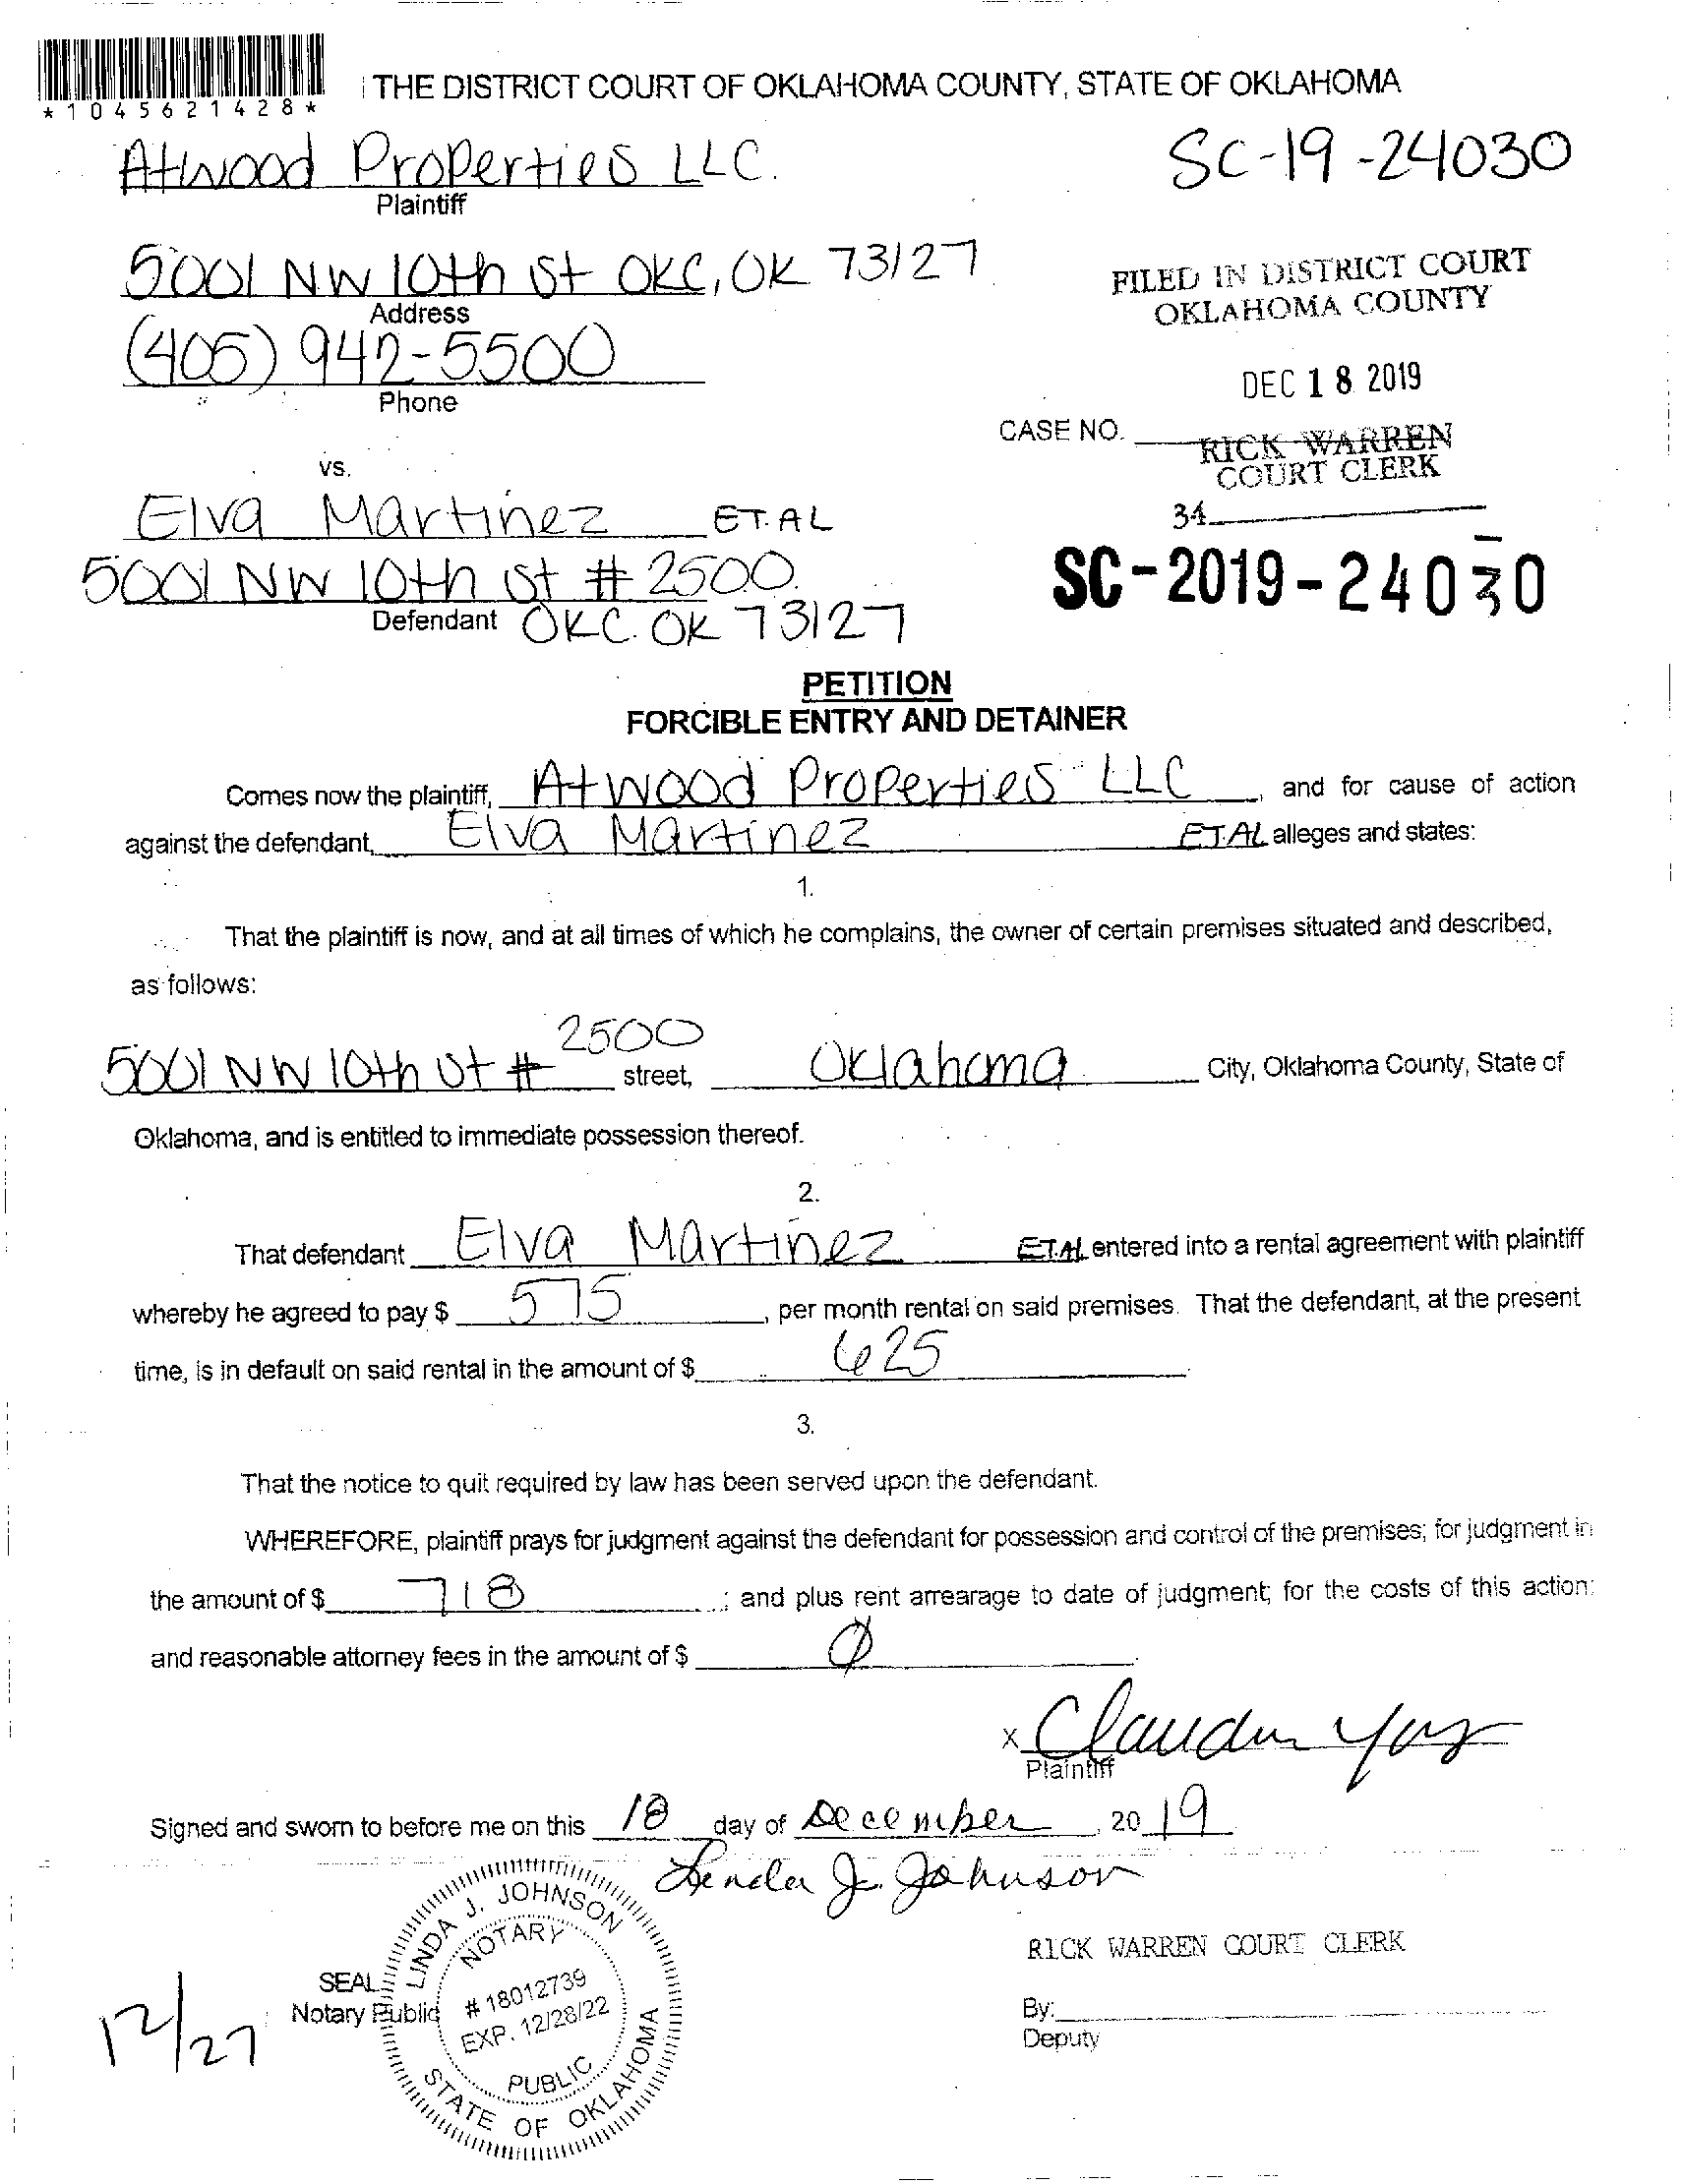 *1045621428*
THE DISTRICT COURT OF OKLAHOMA COUNTY, STATE OF OKLAHOMA
Atwood Properties LLC.
SC-19-24030
Plaintiff
5001 NW 10th St OKC, OK 73127
Address
FILED IN DISTRICT COURT
OKLAHOMA COUNTY
(405) 942-5500
Phone
DEC 18 2019
CASE NO.
RICK WARREN
COURT CLERK
vs.
34
Elva Martinez ET.AL
5001 NW 10th St # 2500.
Defendant OKC. OK 73127
SC-2019-24030
PETITION
FORCIBLE ENTRY AND DETAINER
Comes now the plaintiff, Atwood Properties LLC, and for cause of action
against the defendant, Elva Martinez ET.AL alleges and states:
1.
That the plaintiff is now, and at all times of which he complains, the owner of certain premises situated and described,
as follows:
5001 NW 10th St # 2500 street, Oklahoma City, Oklahoma County, State of
Oklahoma, and is entitled to immediate possession thereof.
2.
That defendant Elva Martinez ET.AL entered into a rental agreement with plaintiff
whereby he agreed to pay $ 575, per month rental on said premises. That the defendant, at the present
time, is in default on said rental in the amount of $ 625.
3.
That the notice to quit required by law has been served upon the defendant.
WHEREFORE, plaintiff prays for judgment against the defendant for possession and control of the premises; for judgment in
the amount of $ 718; and plus rent arrearage to date of judgment; for the costs of this action:
and reasonable attorney fees in the amount of $ Ø.
x Claudia
Plaintiff
Signed and sworn to before me on this 18 day of December, 2019
Linda J. Johnson
LINDA J. JOHNSON
NOTARY
# 18012739
EXP. 12/28/22
PUBLIC
STATE OF OKLAHOMA
SEAL
Notary Public
12/27
RICK WARREN COURT CLERK
By:
Deputy